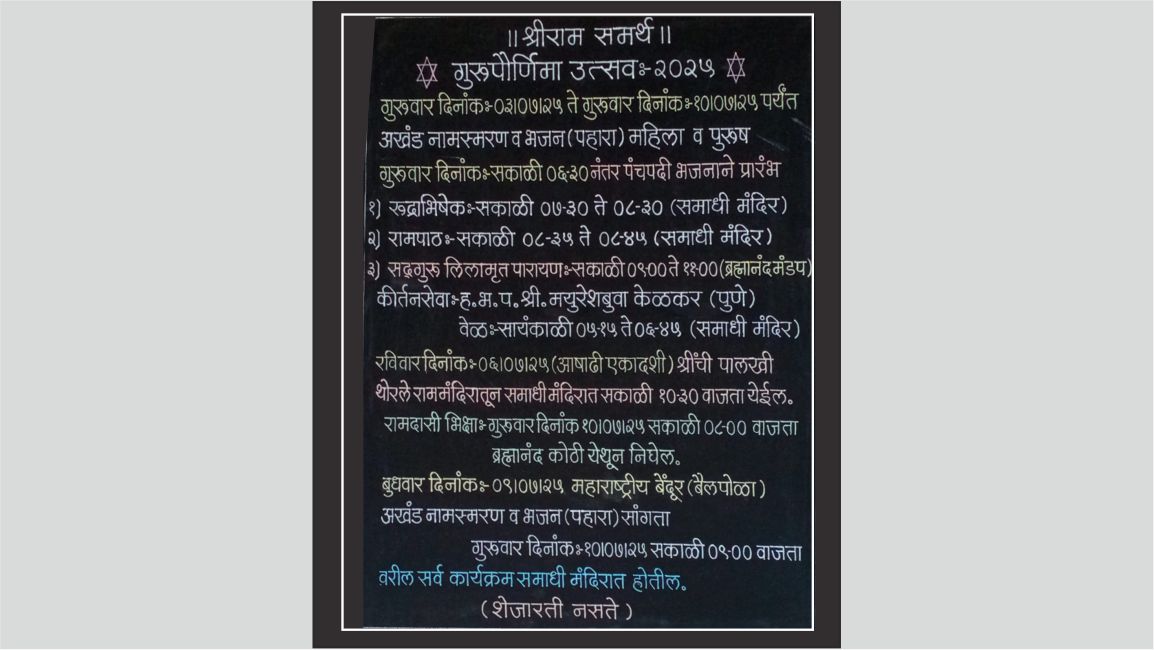 ॥ श्रीराम समर्थ ॥
गुरूपौर्णिमा उत्सवः-२०२५
गुरूवार दिनांकः-०३।०७।२५ ते गुरूवार दिनांकः-१०।०७।२५ पर्यंत
अखंड नामस्मरण व भजन (पहारा) महिला व पुरूष
गुरूवार दिनांकः-सकाळी ०६-३० नंतर पंचपदी भजनाने प्रारंभ
१) रूद्राभिषेकः-सकाळी ०७-३० ते ०८-३० (समाधी मंदिर)
२) रामपाठः-सकाळी ०८-३५ ते ०८-४५ (समाधी मंदिर)
३) सद्गुरू लिलामृत पारायणः-सकाळी ०९-०० ते ११-०० (ब्रह्मानंद मंडप)
कीर्तनसेवाः-ह.भ.प.श्री.मयुरेशबुवा केळकर (पुणे)
वेळः-सायंकाळी ०५-१५ ते ०६-४५ (समाधी मंदिर)
रविवार दिनांकः-०६।०७।२५ (आषाढी एकादशी) श्रींची पालखी
थोरले राममंदिरातून समाधी मंदिरात सकाळी १०-३० वाजता येईल.
रामदासी भिक्षाः-गुरूवार दिनांक १०।०७।२५ सकाळी ०८-०० वाजता
ब्रह्मानंद कोठी येथून निघेल.
बुधवार दिनांकः-०९।०७।२५ महाराष्ट्रीय बेंदूर (बैलपोळा)
अखंड नामस्मरण व भजन (पहारा) सांगता
गुरूवार दिनांकः-१०।०७।२५ सकाळी ०९-०० वाजता
वरील सर्व कार्यक्रम समाधी मंदिरात होतील.
(शेजारती नसते)